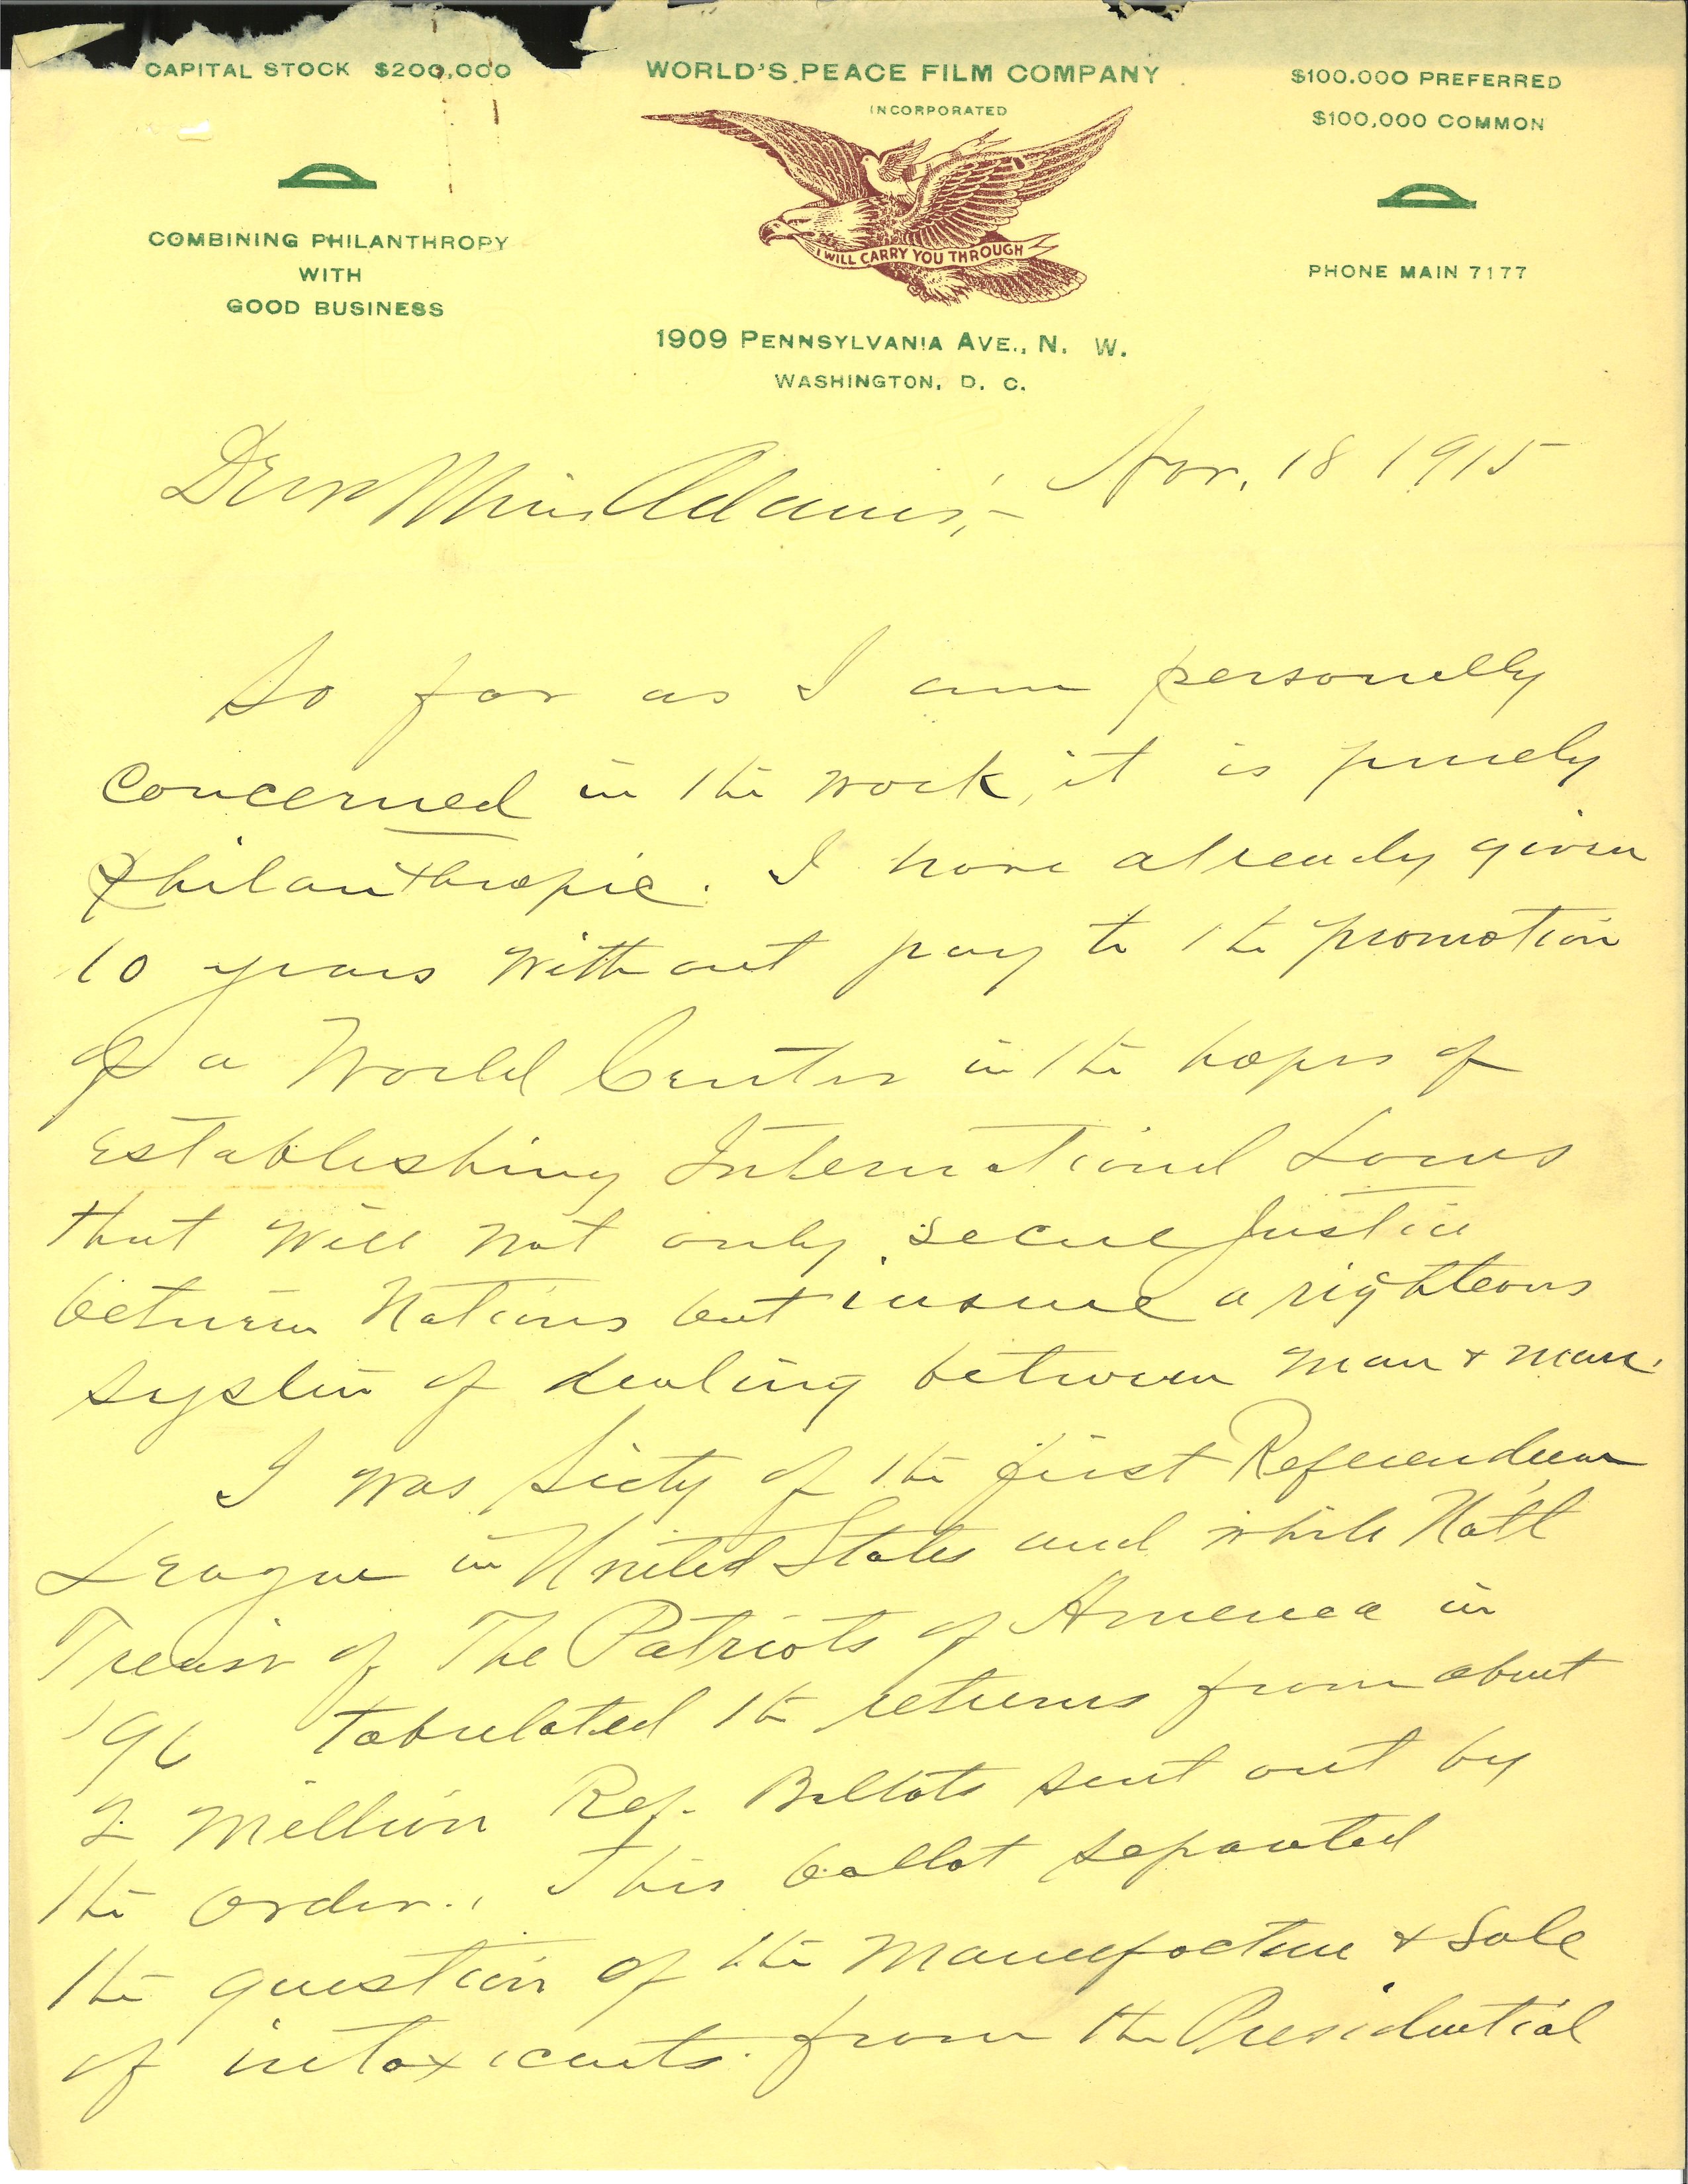 CAPITAL STOCK $200,000
WORLD'S PEACE FILM COMPANY
INCORPORATED
$100.000 PREFERRED
$100,000 COMMON
COMBINING PHILANTHROPY
WITH
GOOD BUSINESS
I WILL CARRY YOU THROUGH
PHONE MAIN 7177
1909 PENNSYLVANIA AVE., N. W.
WASHINGTON, D. C.
Nov. 18 1915
Dear Miss Adams;-
So far as I am personally
concerned in the work, it is purely
Philanthropic. I have already given
10 years without pay to the promotion
of a World Center in the hopes of
establishing International Laws
that will not only secure Justice
between Nations but insure a righteous
system of dealing between man & man.
I was Secty of the first Referendum
League in United States and while Natl
Treasr of The Patriots of America in
'96 tabulated the returns from about
2 million Ref. Ballots sent out by
the order. This ballot separated
the question of the Manufacture & Sale
of intoxicants from the Presidential